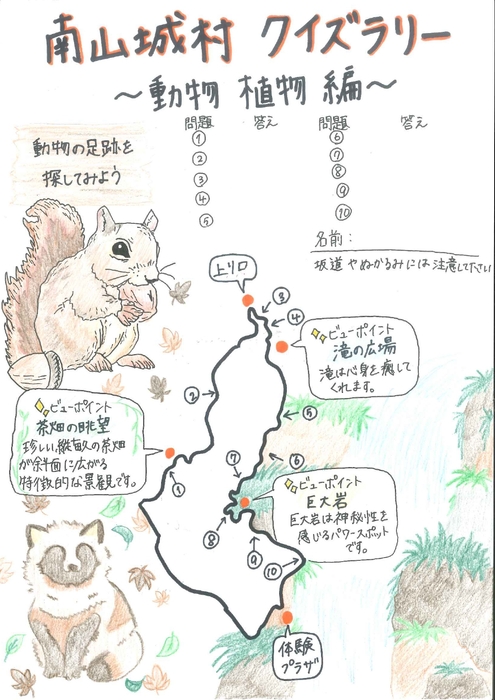 南山城村 クイズラリー
〜動物 植物 編〜
問題 答え 問題 答え
① ⑥
② ⑦
③ ⑧
④ ⑨
⑤ ⑩
動物の足跡を
探してみよう
名前：
坂道やぬかるみには注意して下さい
上り口
③
④
ビューポイント
滝の広場
滝は心身を癒して
くれます。
②
⑤
ビューポイント
茶畑の眺望
珍しい縦畝の茶畑
が斜面に広がる
特徴的な景観です。
①
⑦
⑥
ビューポイント
巨大岩
巨大岩は神秘性を
感じるパワースポット
です。
⑧
⑨
⑩
体験
プラザ